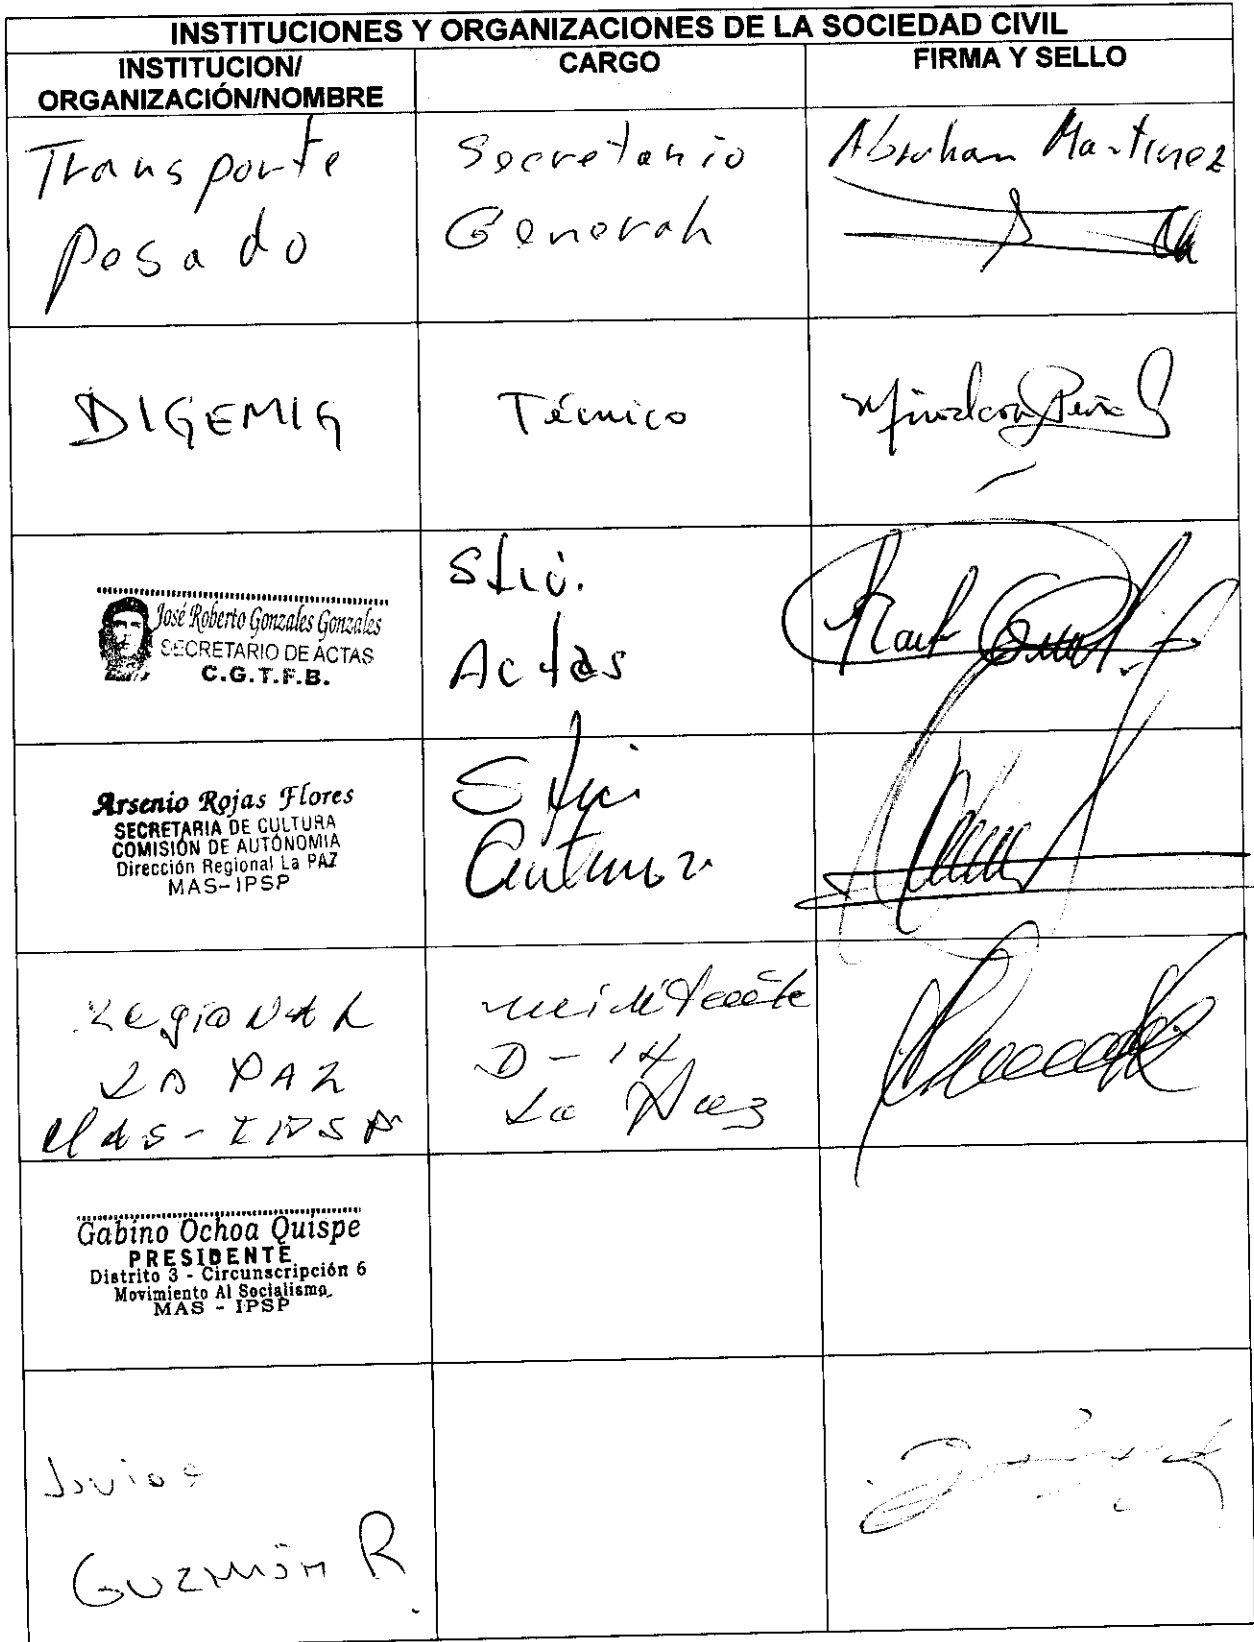 INSTITUCIONES Y ORGANIZACIONES DE LA SOCIEDAD CIVIL
INSTITUCION/
ORGANIZACIÓN/NOMBRE
CARGO
FIRMA Y SELLO
Transporte
Pesado
Secretario
General
Abraham Martinez
DIGEMIG
Técnico
José Roberto Gonzales Gonzales
SECRETARIO DE ACTAS
C.G.T.F.B.
Actas
Arsenio Rojas Flores
SECRETARIA DE CULTURA
COMISIÓN DE AUTÓNOMIA
Dirección Regional La PAZ
MAS-IPSP
Regional
La PAZ
MAS-IPSP
D-14
La Paz
Gabino Ochoa Quispe
PRESIDENTE
Distrito 3 - Circunscripción 6
Movimiento Al Socialismo
MAS - IPSP
GUZMÁN R.